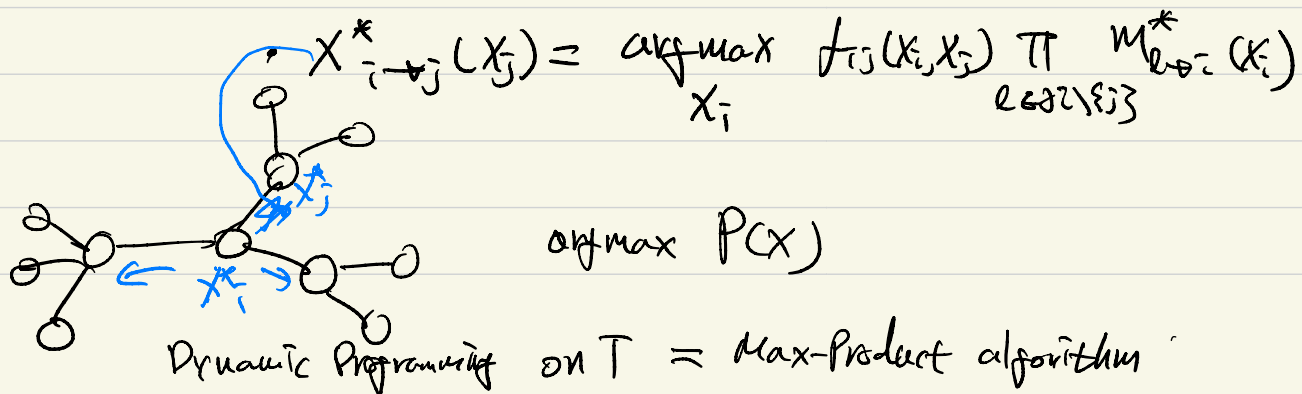 X*_{i→j}(X_j) = argmax_{X_i} f_{ij}(X_i, X_j) ∏_{ℓ∈∂i\{j}} M*_{ℓ→i}(X_i)
X*_j
argmax P(X)
← X*_i →
Dynamic Programming on T = Max-Product algorithm